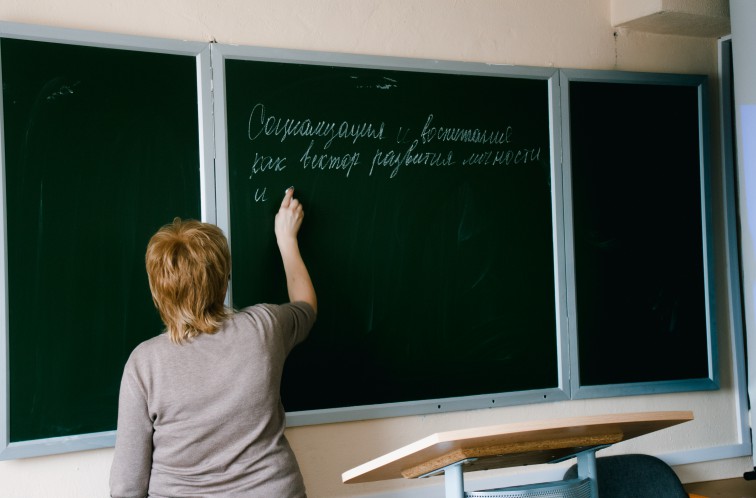 Социализация и воспитания
как вектор развития личности
и